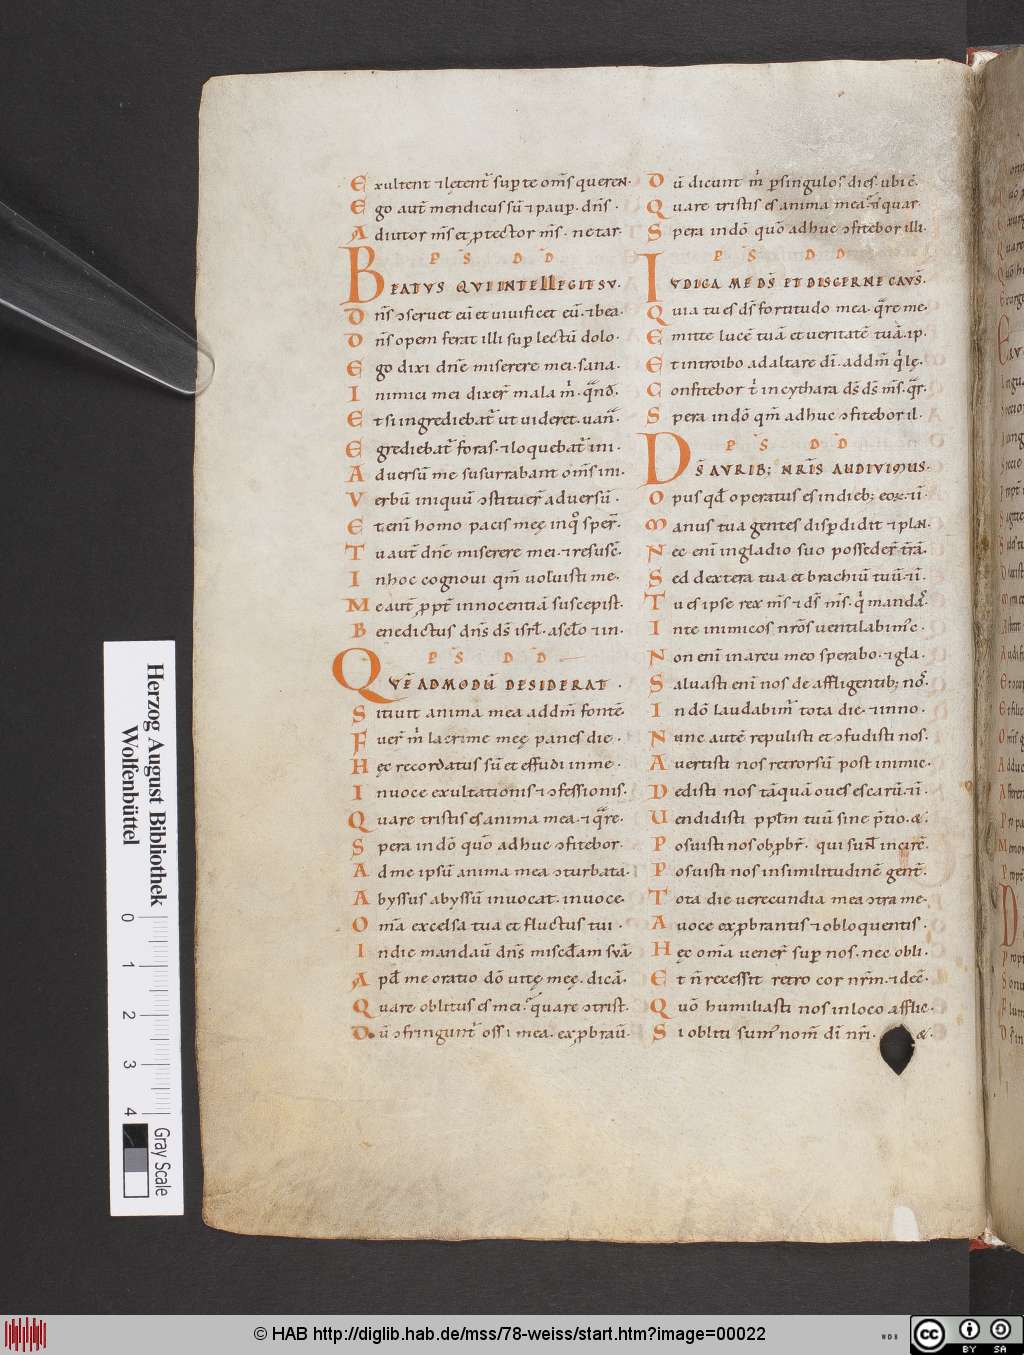 Exultent ⁊ lętent᷑ sup te om̅s querenN·
Ego aut̅ mendicus su̅ ⁊ paup. dn̅s·
Adiutor m̅s et ꝓtector m̅s· ne tar·
PS̅ DD̅
BEATVS QVI INTELLEGIT SV·
Dn̅s ɔseruet eu̅ et uiuificet eu̅· ⁊ bea·
Dn̅s opem ferat illi sup lectu̅ dolo·
Ego dixi dn̅e miserere mei· sana·
Inimici mei dixer̅ mala m̍·
Et si ingrediebat᷑ ut uideret· uan̅·
Egrediebat᷑ foras· ⁊ loquebat᷑ ini·
Aduersu̅ me susurrabant om̅s ini·
Verbu̅ iniquu̅ ɔstituer̅ aduersu̅·
Et eni̅ homo pacis meę inqͦ sper̅·
Tu aut̅ dn̅e miserere mei· ⁊ resusc̅·
In hoc cognoui qm̅ uoluisti me·
Me aut̅ ꝓpt̅ innocentia̅ suscepist·
Benedictus dn̅s ds̅ isrl̅· a sclo̅ ⁊ in·
PS̅ DD̅
QVE̅ADMODV̅ DESIDERAT·
Sitiuit anima mea ad dm̅ fonte̅·
Fuer̅ m̍ lacrime meę panes die·
Hęc recordatus su̅ et effudi in me·
In uoce exultationis ⁊ ɔfessionis·
Quare tristis es anima mea· ⁊ qͣre·
Spera in do̅ quo̅ adhuc ɔfitebor·
Ad me ipsu̅ anima mea ɔturbata·
Abyssus abyssu̅ inuocat· in uoce·
Om̅a excelsa tua et fluctus tui·
In die mandau̅ dn̅s misc̅dam sua̅
Apd̅ me oratio do̅ uitę meę· dica̅·
Quare oblitus es mei· quare ɔtrist·
Du̅ ɔfringunt᷑ ossa mea· exꝓbrau̅·
Du̅ dicunt m̍ p singulos dies· ubi e̅·
Quare tristis es anima mea· ⁊ quar
Spera in do̅ quo̅ adhuc ɔfitebor illi·
PS̅ DD̅
IVDICA ME DS̅ ET DISCERNE CAVS̅·
Quia tu es ds̅ fortitudo mea· qͣre me·
Emitte luce̅ tua̅ et ueritate̅ tua̅· ip·
Et introibo ad altare di̅· ad dm̅ q̍ lę·
Confitebor t̍ in cythara ds̅ ds̅ m̅s· qͣr·
Spera in do̅ qm̅ adhuc ɔfitebor il·
PS̅ DD̅
DS̅ AVRIB; NR̅IS AVDIVIMVS·
Opus qd̅ operatus es in dieb; eoꝝ·
Manus tua gentes disp̱didit ⁊ plN·
Nec eni̅ in gladio suo posseder̅ t̅ra̅·
Sed dextera tua et brachiu̅ tuu̅·
Tu es ipse rex m̅s ⁊ ds̅ m̅s· q̍ manda̅·
In te inimicos nr̅os uentilabim᷒·
Non eni̅ in arcu meo sperabo· ⁊ gla·
Saluasti eni̅ nos de affligentib; no̅·
In do̅ laudabim᷒ tota die· ⁊ in no·
Nunc aute̅ repulisti et ɔfudisti nos·
Auertisti nos retrorsu̅ post inimic·
Dedisti nos ta̅qua̅ oues escaru̅·
Uendidisti pplm̅ tuu̅ sine p̅tio· &·
Posuisti nos obꝓbr̅· qui sunt in circ̅·
Posuisti nos in similitudine̅ gent̅·
Tota die uerecundia mea ɔtra me·
A uoce exꝓbrantis ⁊ obloquentis·
Hęc om̅a uener̅ sup nos· nec obli·
Et n̅ recessit retro cor nr̅m· ⁊ dec̅·
Quo̅ humiliasti nos in loco afflic·
Si obliti sum᷒ nom̅ di̅ nr̅i· &·
Herzog August Bibliothek
Wolfenbüttel
0 1 2 3 4
Gray Scale
© HAB http://diglib.hab.de/mss/78-weiss/start.htm?image=00022
WDB
cc BY SA